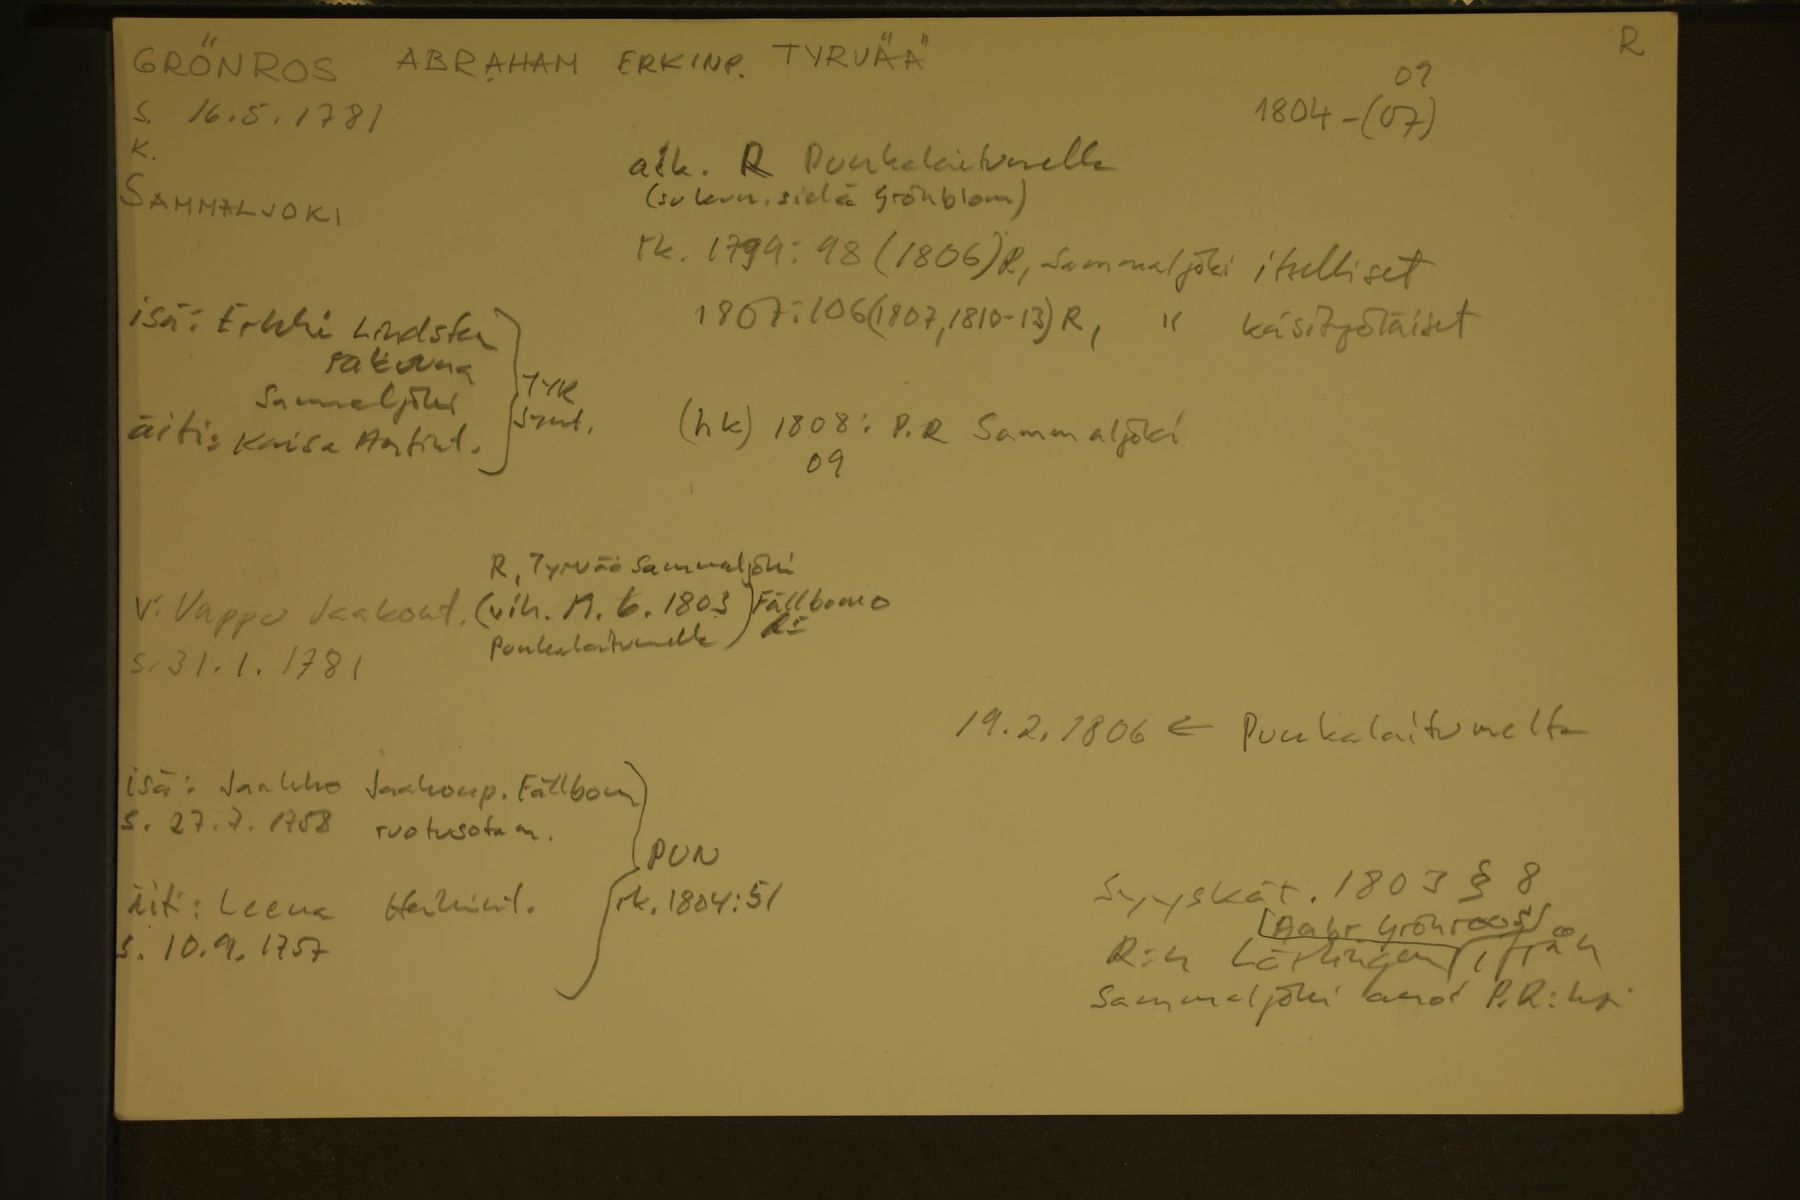 GRÖNROS ABRAHAM ERKINP. TYRVÄÄ R
09
s. 16.5.1781 1804-(07)
K.
SAMMALJOKI
aik. R Punkalaitumella
(sukun. sielä Grönblom)
rk. 1799:98 (1806) R, Sammaljoki itselliset
1807:106 (1807, 1810-13) R, " käsityöläiset
isä: Erkki Lindsten
rakuuna
Sammaljoki
äiti: Kaisa Antint.
TYR
synt.
(hk) 1808: P.R Sammaljoki
09
R, Tyrvää Sammaljoki
v: Vappu Jaakont. (vih. 19.6.1803 Fällbomo
Punkalaitumella) R:
s. 31.1.1781
19.2.1806 ← Punkalaitumelta
isä: Jaakko Jaakonp. Fällbom
s. 27.7.1758 ruotusotam.
PUN
rk. 1804:51
äiti: Leena Heikint.
s. 10.9.1757
Syyskär. 1803 § 8
[Aabr Grönroos]
R:n Lärlingen, från
Sammaljoki anoi P.R:ksi